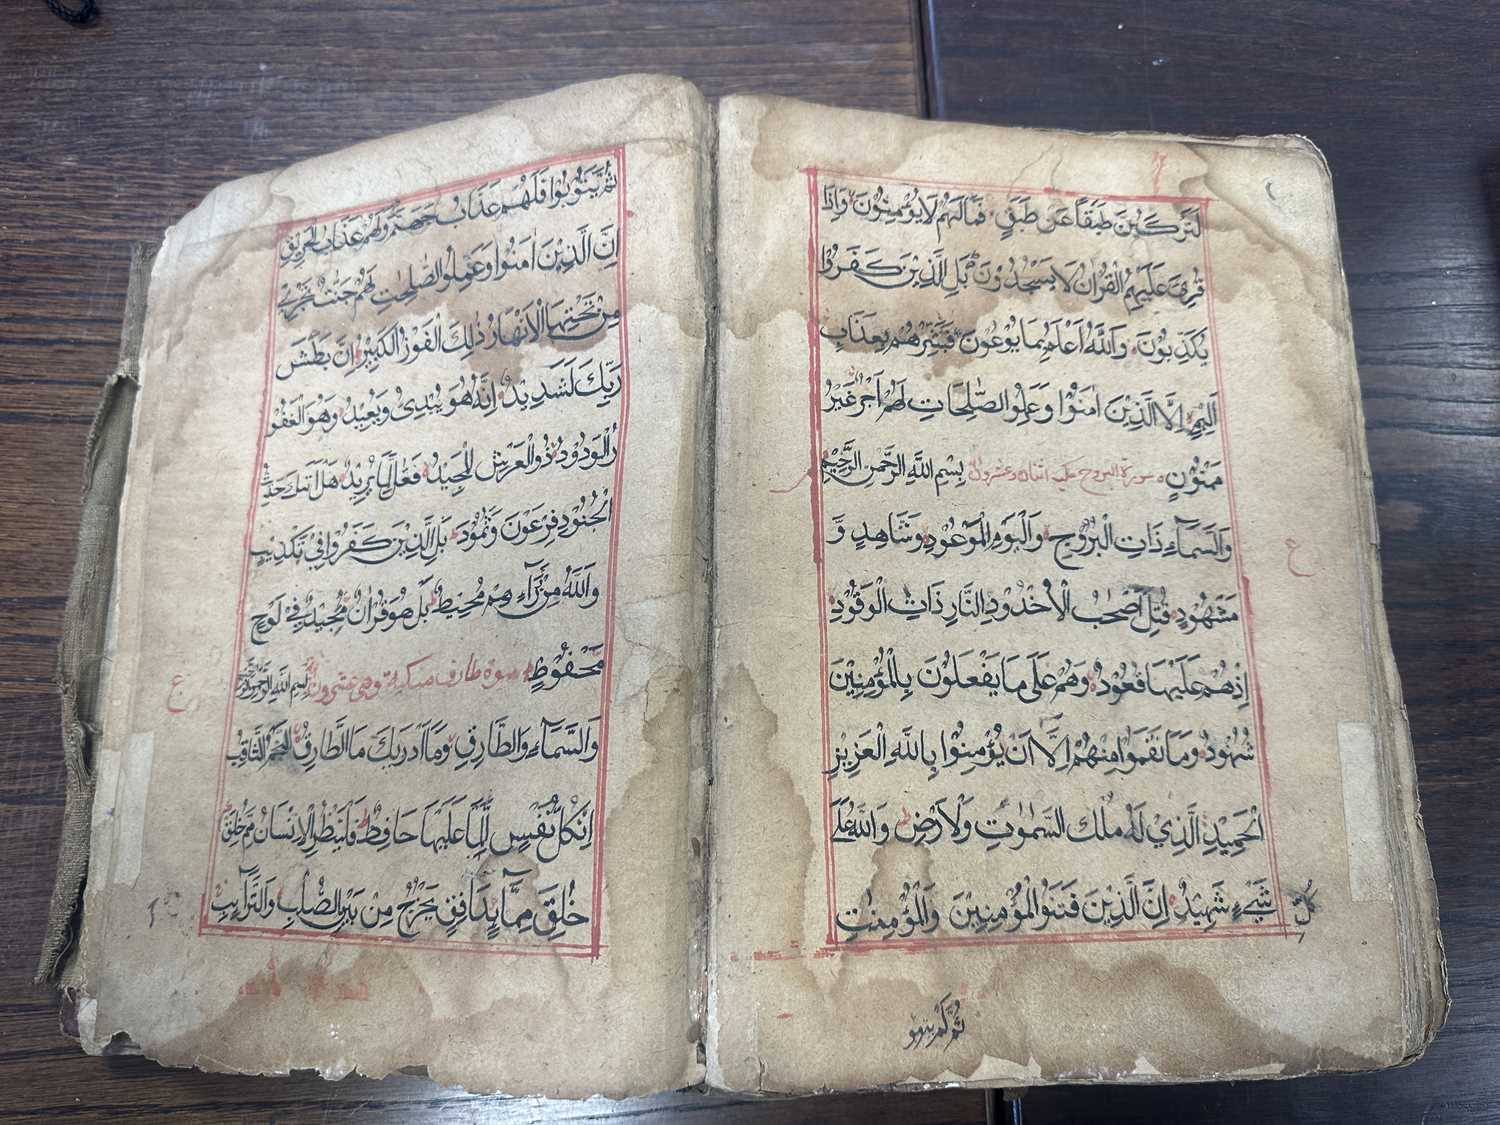 لَتَرْكَبُنَّ طَبَقًا عَنْ طَبَقٍ فَمَا لَهُمْ لَا يُؤْمِنُونَ وَاِذَا
قُرِئَ عَلَيْهِمُ الْقُرْاٰنُ لَا يَسْجُدُوْنَ بَلِ الَّذِيْنَ كَفَرُوْا
يُكَذِّبُوْنَ وَاللّٰهُ اَعْلَمُ بِمَا يُوْعُوْنَ فَبَشِّرْهُمْ بِعَذَابٍ
اَلِيْمٍ اِلَّا الَّذِيْنَ اٰمَنُوْا وَعَمِلُوا الصّٰلِحَاتِ لَهُمْ اَجْرٌ غَيْرُ
مَمْنُوْنٍ سورة البروج بِسْمِ اللّٰهِ الرَّحْمٰنِ الرَّحِيْمِ
وَالسَّمَآءِ ذَاتِ الْبُرُوْجِ وَالْيَوْمِ الْمَوْعُوْدِ وَشَاهِدٍ وَّ
مَشْهُوْدٍ قُتِلَ اَصْحٰبُ الْاُخْدُوْدِ النَّارِ ذَاتِ الْوَقُوْدِ
اِذْ هُمْ عَلَيْهَا قُعُوْدٌ وَهُمْ عَلٰى مَا يَفْعَلُوْنَ بِالْمُؤْمِنِيْنَ
شُهُوْدٌ وَمَا نَقَمُوْا مِنْهُمْ اِلَّا اَنْ يُؤْمِنُوْا بِاللّٰهِ الْعَزِيْزِ
الْحَمِيْدِ الَّذِيْ لَهُ مُلْكُ السَّمٰوٰتِ وَلْاَرْضِ وَاللّٰهُ عَلٰى
كُلِّ
شَيْءٍ شَهِيْدٌ اِنَّ الَّذِيْنَ فَتَنُوا الْمُؤْمِنِيْنَ وَالْمُؤْمِنٰتِ
ثُمَّ لَمْ يتوبو
ع
ثُمَّ يَتُوْبُوْا فَلَهُمْ عَذَابُ جَهَنَّمَ وَلَهُمْ عَذَابُ الْحَرِيْقِ
اِنَّ الَّذِيْنَ اٰمَنُوْا وَعَمِلُوا الصّٰلِحٰتِ لَهُمْ جَنّٰتٌ تَجْرِيْ
مِنْ تَحْتِهَا الْاَنْهَارُ ذٰلِكَ الْفَوْزُ الْكَبِيْرُ اِنَّ بَطْشَ
رَبِّكَ لَشَدِيْدٌ اِنَّهُ هُوَ يُبْدِئُ وَيُعِيْدُ وَهُوَ الْغَفُوْ
رُ الْوَدُوْدُ ذُو الْعَرْشِ الْمَجِيْدُ فَعَّالٌ لِّمَا يُرِيْدُ هَلْ اَتٰىكَ حَدِيْثُ
الْجُنُوْدِ فِرْعَوْنَ وَثَمُوْدَ بَلِ الَّذِيْنَ كَفَرُوْا فِيْ تَكْذِيْبٍ
وَاللّٰهُ مِنْ وَّرَآءِهِمْ مُّحِيْطٌ بَلْ هُوَ قُرْاٰنٌ مَّجِيْدٌ فِيْ لَوْحٍ
مَّحْفُوْظٍ سورة طارق مكية وهي بِسْمِ اللّٰهِ الرَّحْمٰنِ الرَّحِيْمِ
وَالسَّمَآءِ وَالطَّارِقِ وَمَا اَدْرٰىكَ مَا الطَّارِقُ النَّجْمُ الثَّاقِبُ
اِنْ كُلُّ نَفْسٍ لَّمَّا عَلَيْهَا حَافِظٌ فَلْيَنْظُرِ الْاِنْسَانُ مِمَّ خُلِقَ
خُلِقَ مِنْ مَّآءٍ دَافِقٍ يَّخْرُجُ مِنْ بَيْنِ الصُّلْبِ وَالتَّرَآئِبِ
ع